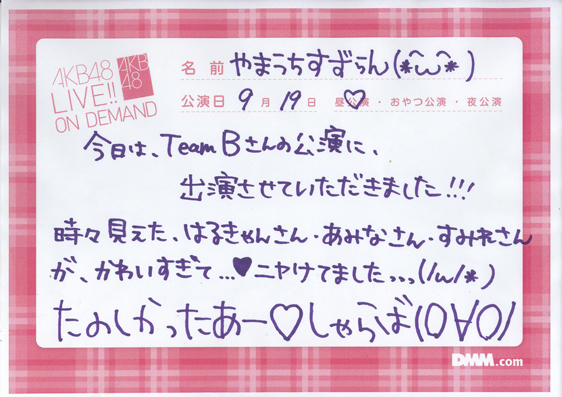 AKB48
LIVE!!
ON DEMAND
AKB
48
名前 やまうちすずらん(*^ω^*)
公演日 9月19日 昼公演・おやつ公演・夜公演
♡
今日は、Team Bさんの公演に、
出演させていただきました!!!
時々見えた、はるきゃんさん・あみなさん・すみれさん
が、かわいすぎて...♥ニヤけてましたっっっ(/ω/*)
たのしかったあー♡しゃらば(O∀O)/
DMM.com